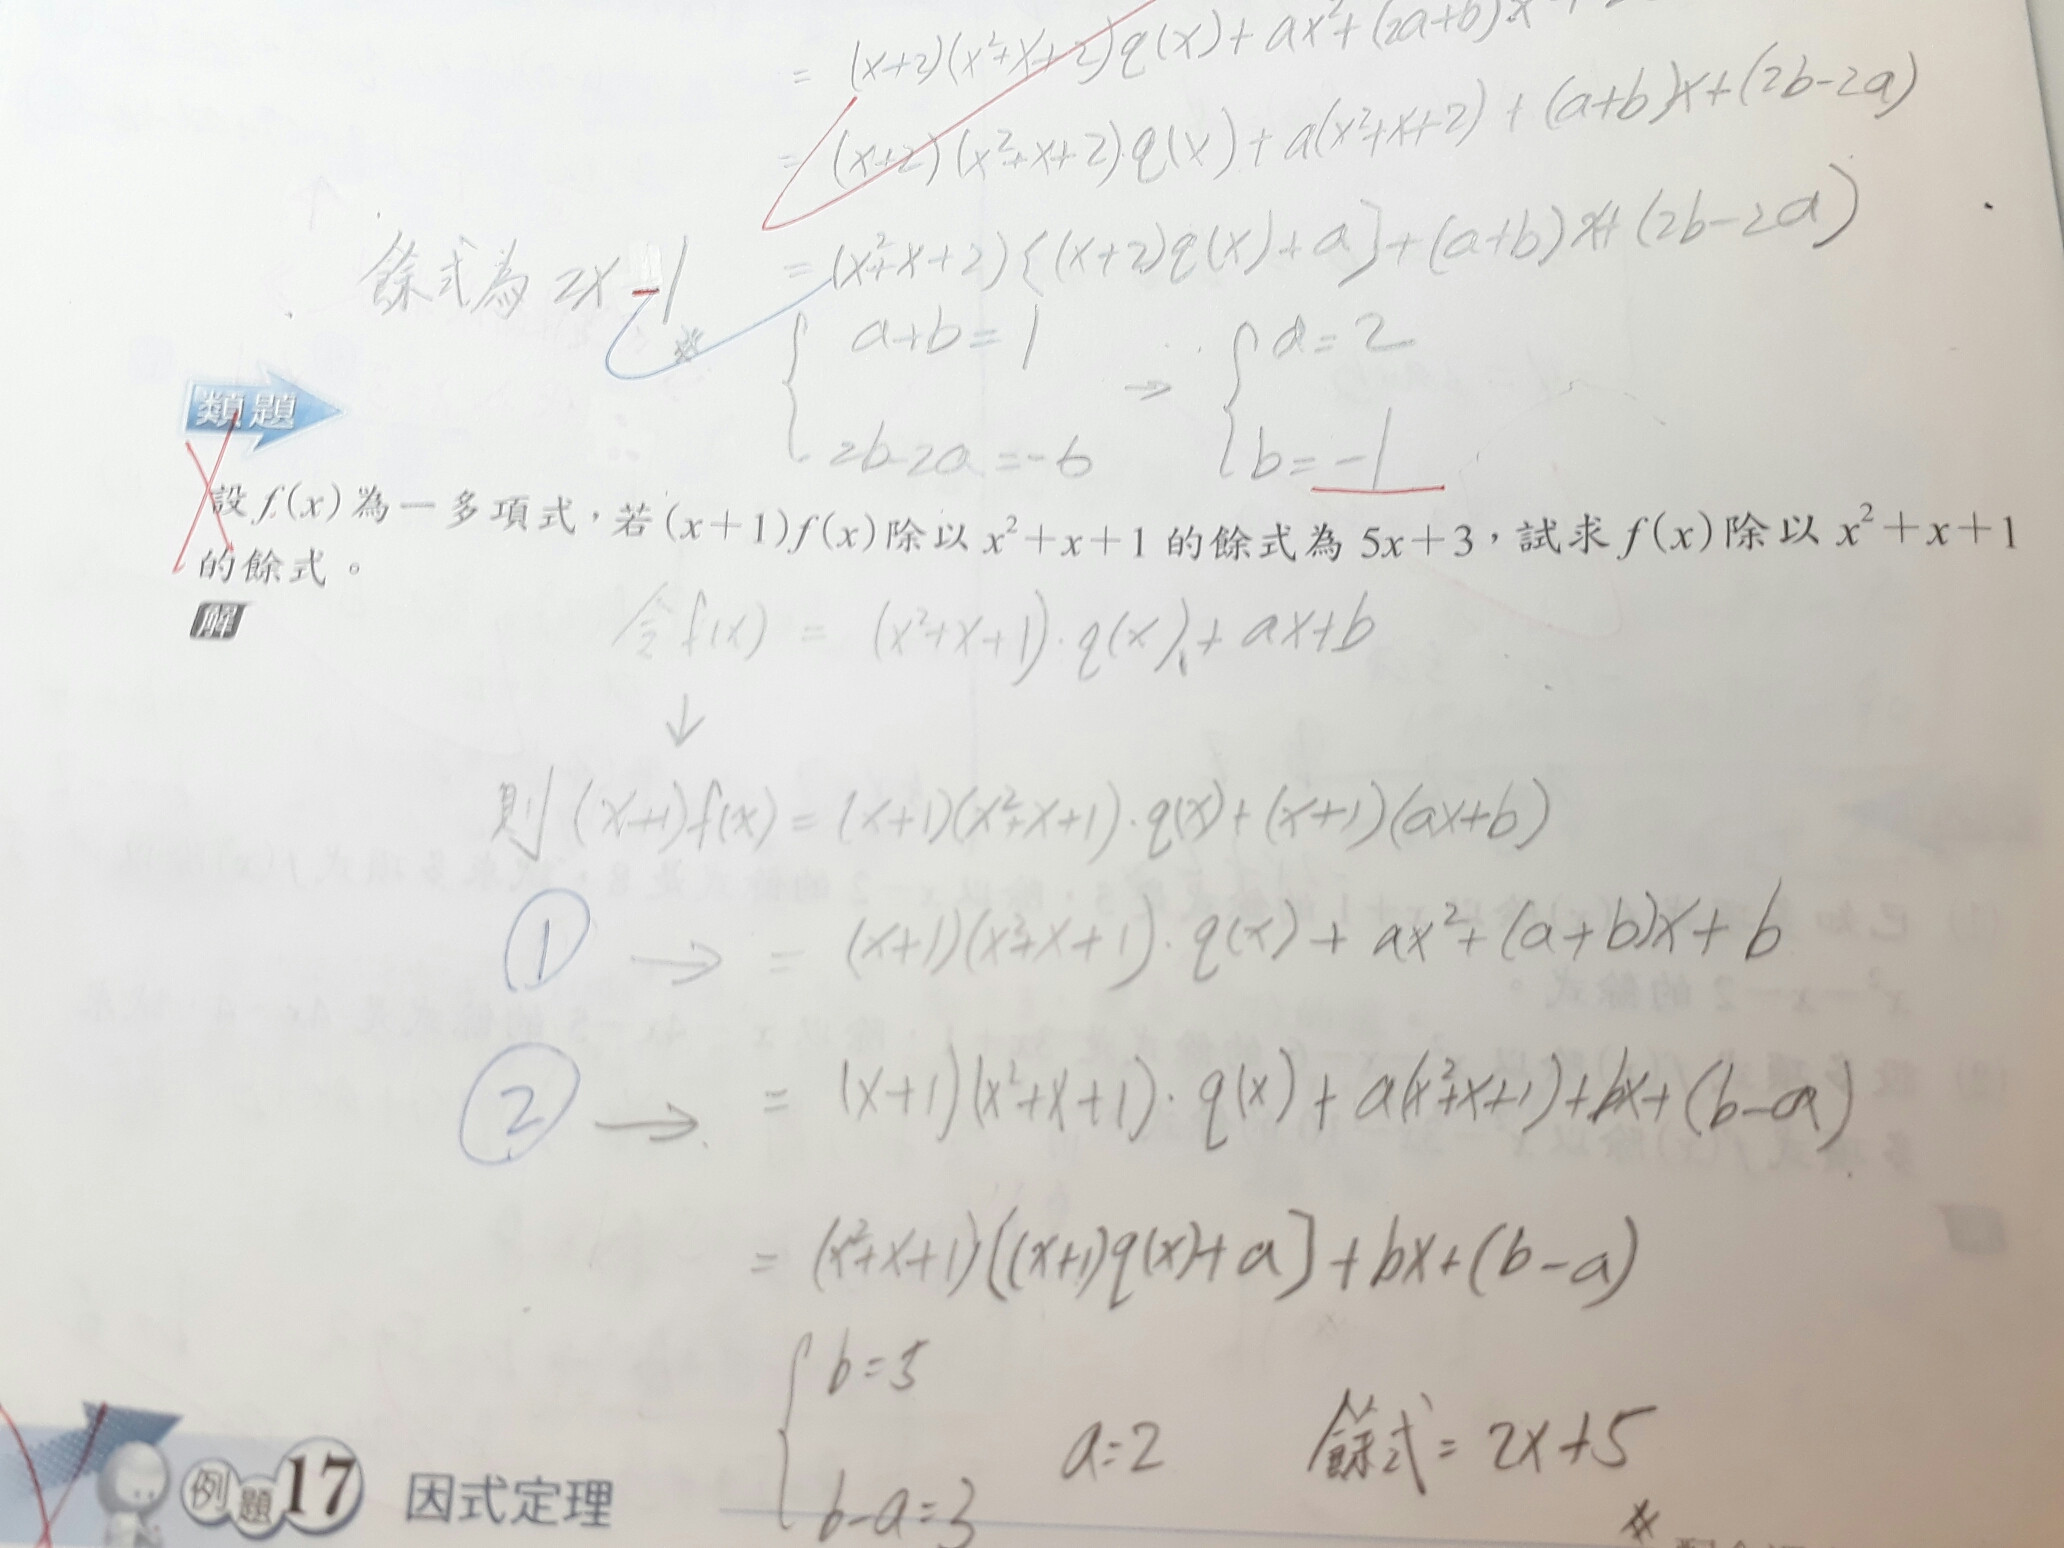 = (x+2)(x²+x+2)q(x)+ax²+(2a+b)x+
= (x+2)(x²+x+2)·q(x)+a(x²+x+2)+(a+b)x+(2b-2a)
餘式為 2x-1
= (x²+x+2){(x+2)q(x)+a]+(a+b)x+(2b-2a)
a+b=1 → a=2
2b-2a=-6 b=-1
類題
設 f(x) 為一多項式，若 (x+1)f(x) 除以 x²+x+1 的餘式為 5x+3，試求 f(x) 除以 x²+x+1
的餘式。
解
令f(x) = (x²+x+1)·q(x)+ax+b
↓
則(x+1)f(x)=(x+1)(x²+x+1)·q(x)+(x+1)(ax+b)
① → = (x+1)(x²+x+1)·q(x)+ax²+(a+b)x+b
② → = (x+1)(x²+x+1)·q(x)+a(x²+x+1)+bx+(b-a)
= (x²+x+1)[(x+1)q(x)+a]+bx+(b-a)
b=5
b-a=3 a=2 餘式=2x+5
例題17 因式定理